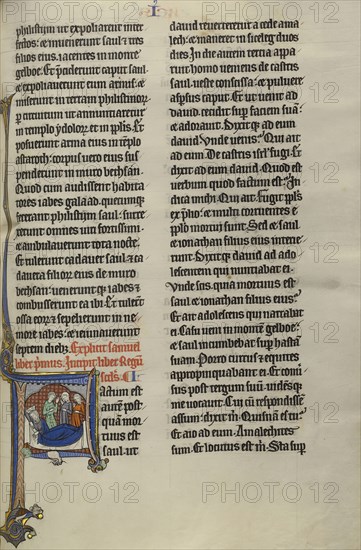 I
philistiim ut expoliarent inter
fectos: et invenerunt saul et tres
filios eius iacentes in monte
gelboe. Et preciderunt caput saul
et expoliaverunt eum armis: et
miserunt in terram philistinor
per circuitum ut annuntiaretur
in templo ydolorum et in populis. Et
posuerunt arma eius in templo
astaroth: corpus vero eius sus
penderunt in muro bethsan.
Quod cum audissent habita
tores iabes galaad quecumque
fecerant philistiim saul: surre
xerunt omnes viri fortissimi.
et ambulaverunt tota nocte.
Et tulerunt cadaver saul et ca
davera filiorum eius de muro
bethsan: veneruntque iabes et
combusserunt ea ibi. Et tulerunt
ossa eorum et sepelierunt in ne
more iabes: et ieiunaverunt
septem diebus. Explicit samuel
liber primus. Incipit liber Regum
scds. I
actum est
autem post
quam mor
tuus est
saul. ut
david reverteretur a cede ama
lech: et maneret in siceleg duos
dies. In die autem tertia appa
ruit homo veniens de castris
saul: veste conscissa: et pulvere
aspersus caput. Et ut venit ad
david. cecidit super faciem suam
et adoravit. Dixitque ad eum
david. Unde venis? Qui ait
ad eum. De castris isrl fugi. Et
dixit ad eum david. Quod est
verbum quod factum est? In
dica michi. Qui ait. Fugit populus
ex prelio: et multi corruentes e
populo mortui sunt. Sed et saul
et ionathan filius eius interie
runt. Dixitque david ad ado
lescentem qui nuntiabat ei.
Unde scis. quia mortuus est
saul et ionathan filius eius?
Et ait adolescens qui narrabat
ei. Casu veni in montem gelboe:
et saul incumbebat super hastam
suam. Porro currus et equites
appropinquabant ei. Et conver
sus post tergum suum. vidensque
me vocavit. Cui cum respondissem
assum: dixit michi. Quisnam es tu?
Et aio ad eum. Amalechites
sum. Et locutus est michi. Sta super